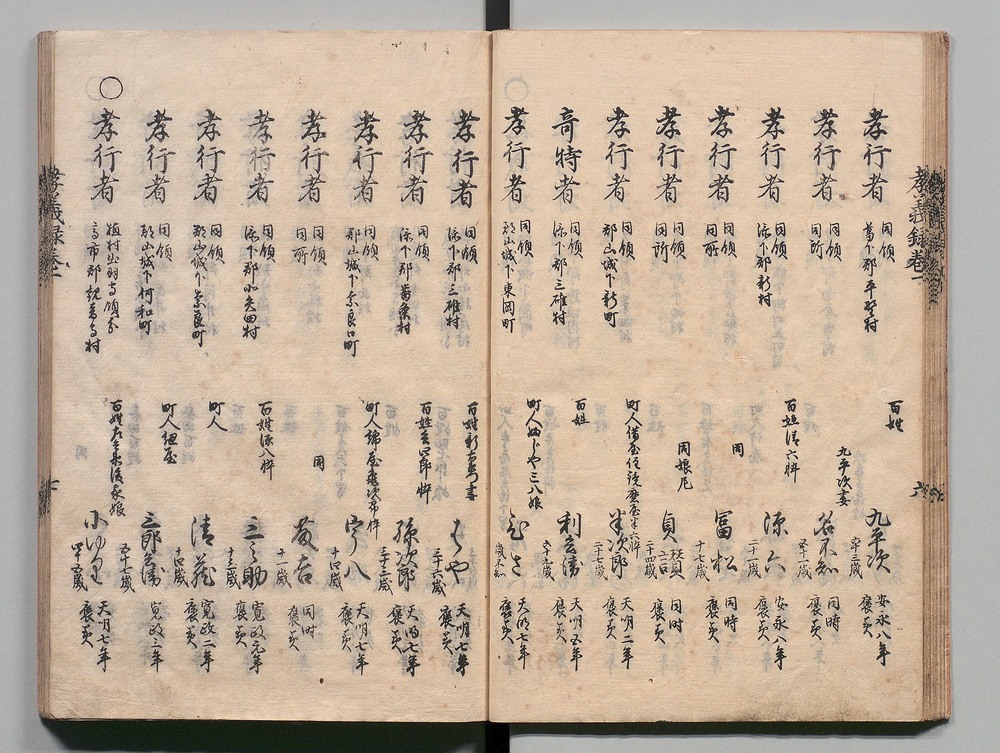 孝義録巻一
孝行者 同領 葛下郡平野村 百姓 九平次 安永八年 褒美
孝行者 同領 同所 九平次妻 名不知 同時 褒美
孝行者 同領 添下郡新村 百姓清六忰 源六 二十一歳 安永八年 褒美
孝行者 同領 同所 同 冨松 十七歳 同時 褒美
孝行者 同領 同所 同娘尼 貞 二十四歳 同時 褒美
孝行者 同領 郡山城下新町 町人 半次郎 二十七歳 天明二年 褒美
奇特者 同領 添下郡三碓村 百姓 利兵衛 天明五年 褒美
孝行者 同領 郡山城下東岡町 町人 八娘 歳不知 天明七年 褒美
孝行者 同領 添下郡三碓村 百姓 妻 はや 三十六歳 天明七年 褒美
孝行者 同領 添下郡 村 百姓 忰 孫次郎 三十三歳 天明七年 褒美
孝行者 同領 郡山城下奈良口町 町人 忰 宇八 十四歳 天明七年 褒美
孝行者 同領 同所 同 十一歳 同時 褒美
孝行者 同領 添下郡 矢田村 百姓源八忰 三之助 十三歳 寛政元年 褒美
孝行者 同領 郡山城下奈良町 町人 清蔵 十四歳 寛政二年 褒美
孝行者 同領 郡山城下 町 町人 屋 三郎兵衛 五十七歳 寛政三年 褒美
○孝行者 植村出羽守領分 高市郡観音寺村 百姓 後家娘 小ゆり 四十五歳 天明七年 褒美
孝義録巻一